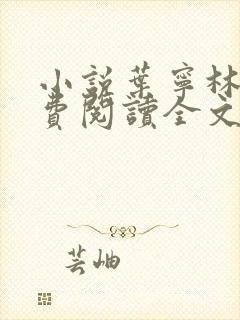 小説葉寧林
費閱讀全文
芸岫